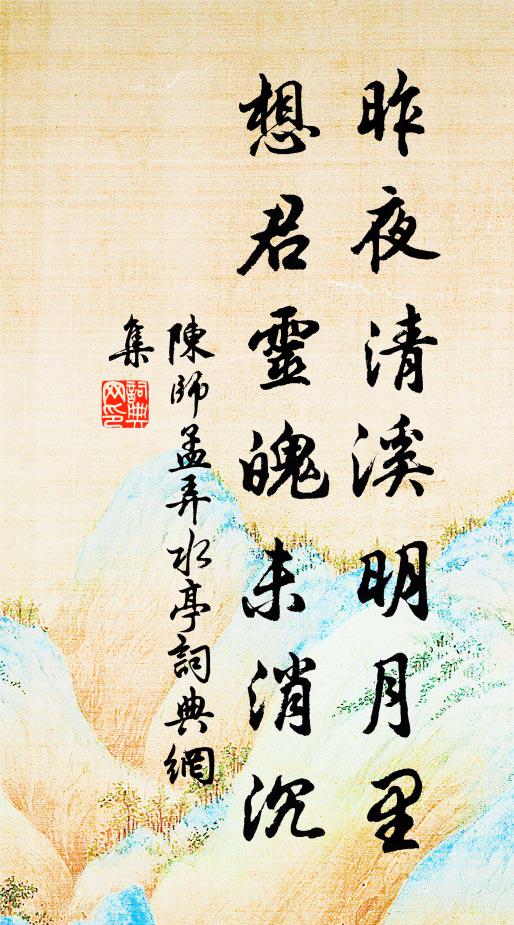 昨夜清溪明月里
想君靈魄未消沉
陳師孟弄水亭詞典網
集
詞典
网印